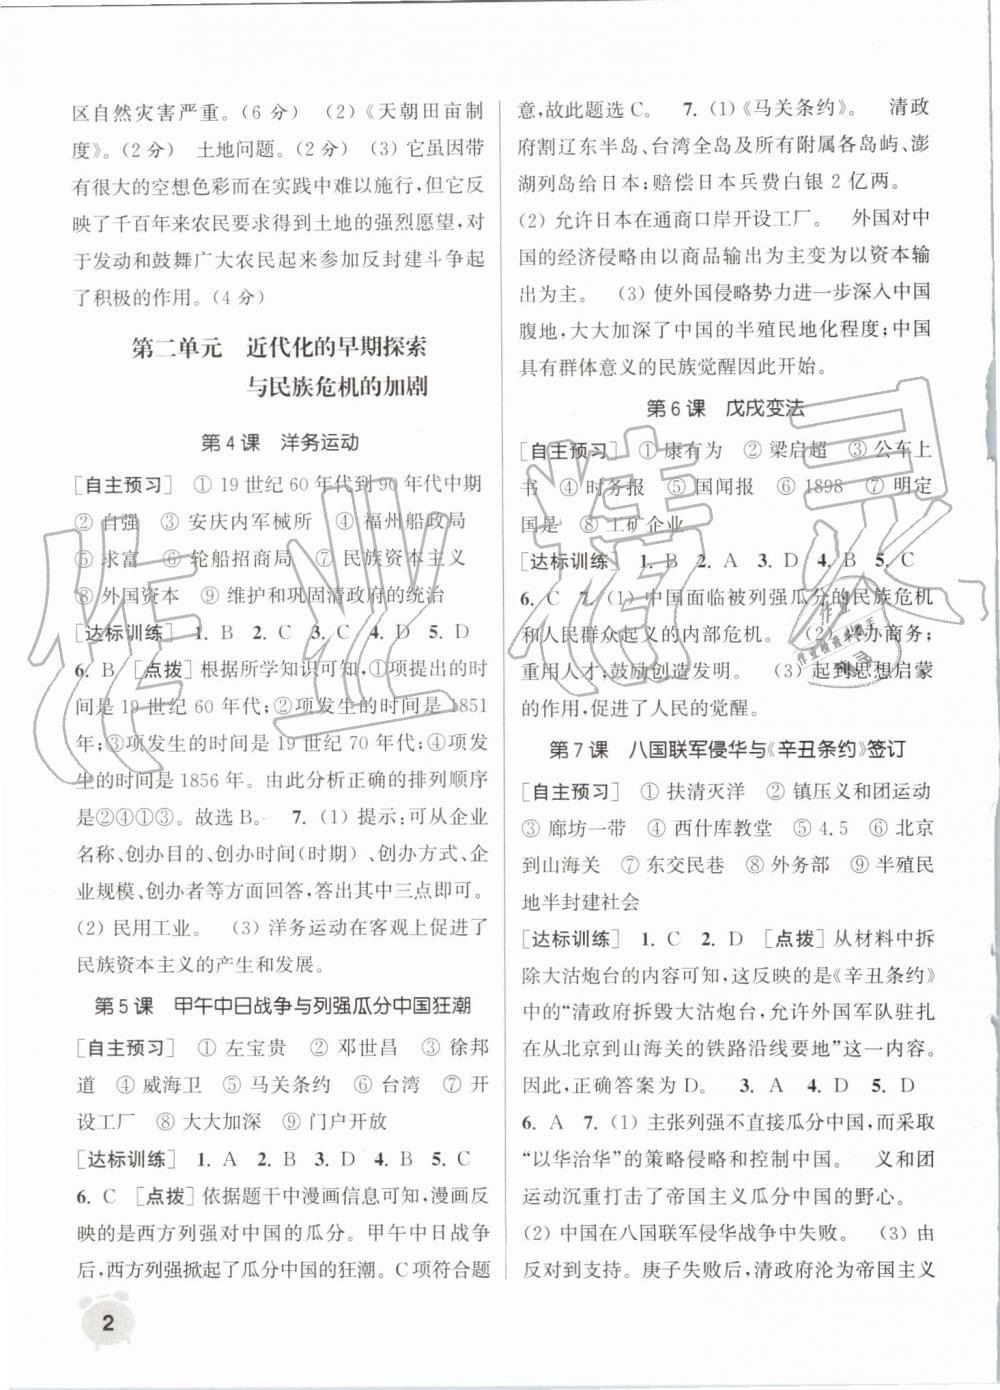 区自然灾害严重。(6 分)　(2)《天朝田亩制
度》。(2 分)　土地问题。(2 分)　(3) 它虽因带
有很大的空想色彩而在实践中难以施行,但它反
映了千百年来农民要求得到土地的强烈愿望,对
于发动和鼓舞广大农民起来参加反封建斗争起
了积极的作用。(4 分)
第二单元　近代化的早期探索
与民族危机的加剧
第 4 课　洋务运动
[自主预习]　① 19 世纪 60 年代到 90 年代中期
② 自强　③ 安庆内军械所　④ 福州船政局
⑤ 求富　⑥ 轮船招商局　⑦ 民族资本主义
⑧ 外国资本　⑨ 维护和巩固清政府的统治
[达标训练]　1. B　2. A　3. C　4. D　5. D
6. B　[点拨] 根据所学知识可知,①项提出的时
间是 19 世纪 60 年代;②项发生的时间是 1851
年;③项发生的时间是 19 世纪 70 年代;④项发
生的时间是 1856 年。由此分析正确的排列顺序
是②④①③。故选 B。　7. (1) 提示:可从企业
名称、创办目的、创办时间(时期)、创办方式、企
业规模、创办者等方面回答,答出其中三点即可。
(2) 民用工业。　(3) 洋务运动在客观上促进了
民族资本主义的产生和发展。
第 5 课　甲午中日战争与列强瓜分中国狂潮
[自主预习]　① 左宝贵　② 邓世昌　③ 徐邦
道　④ 威海卫　⑤ 马关条约　⑥ 台湾　⑦ 开
设工厂　⑧ 大大加深　⑨ 门户开放
[达标训练]　1. A　2. B　3. A　4. B　5. C
6. C　[点拨] 依据题干中漫画信息可知,漫画反
映的是西方列强对中国的瓜分。甲午中日战争
后,西方列强掀起了瓜分中国的狂潮。C 项符合题
意,故此题选 C。　7. (1)《马关条约》。　清政
府割辽东半岛、台湾全岛及所有附属各岛屿、澎
湖列岛给日本;赔偿日本兵费白银 2 亿两。
(2) 允许日本在通商口岸开设工厂。　外国对中
国的经济侵略由以商品输出为主变为以资本输
出为主。　(3) 使外国侵略势力进一步深入中国
腹地,大大加深了中国的半殖民地化程度;中国
具有群体意义的民族觉醒因此开始。
第 6 课　戊戌变法
[自主预习]　① 康有为　② 梁启超　③ 公车上
书　④ 时务报　⑤ 国闻报　⑥ 1898　⑦ 明定
国是　⑧ 工矿企业
[达标训练]　1. B　2. A　3. D　4. B　5. C
6. C　7. (1) 中国面临被列强瓜分的民族危机
和人民群众起义的内部危机。　(2) 兴办商务;
重用人才;鼓励创造发明。　(3) 起到思想启蒙
的作用,促进了人民的觉醒。
第 7 课　八国联军侵华与《辛丑条约》签订
[自主预习]　① 扶清灭洋　② 镇压义和团运动
③ 廊坊一带　④ 西什库教堂　⑤ 4.5　⑥ 北京
到山海关　⑦ 东交民巷　⑧ 外务部　⑨ 半殖民
地半封建社会
[达标训练]　1. C　2. D　[点拨] 从材料中拆
除大沽炮台的内容可知,这反映的是《辛丑条约》
中的“清政府拆毁大沽炮台,允许外国军队驻扎
在从北京到山海关的铁路沿线要地”这一内容。
因此,正确答案为 D。　3. A　4. D　5. D
6. A　7. (1) 主张列强不直接瓜分中国,而采取
“以华治华”的策略侵略和控制中国。　义和团
运动沉重打击了帝国主义瓜分中国的野心。
(2) 中国在八国联军侵华战争中失败。　(3) 由
反对到支持。庚子失败后,清政府沦为帝国主义
2
作业精灵